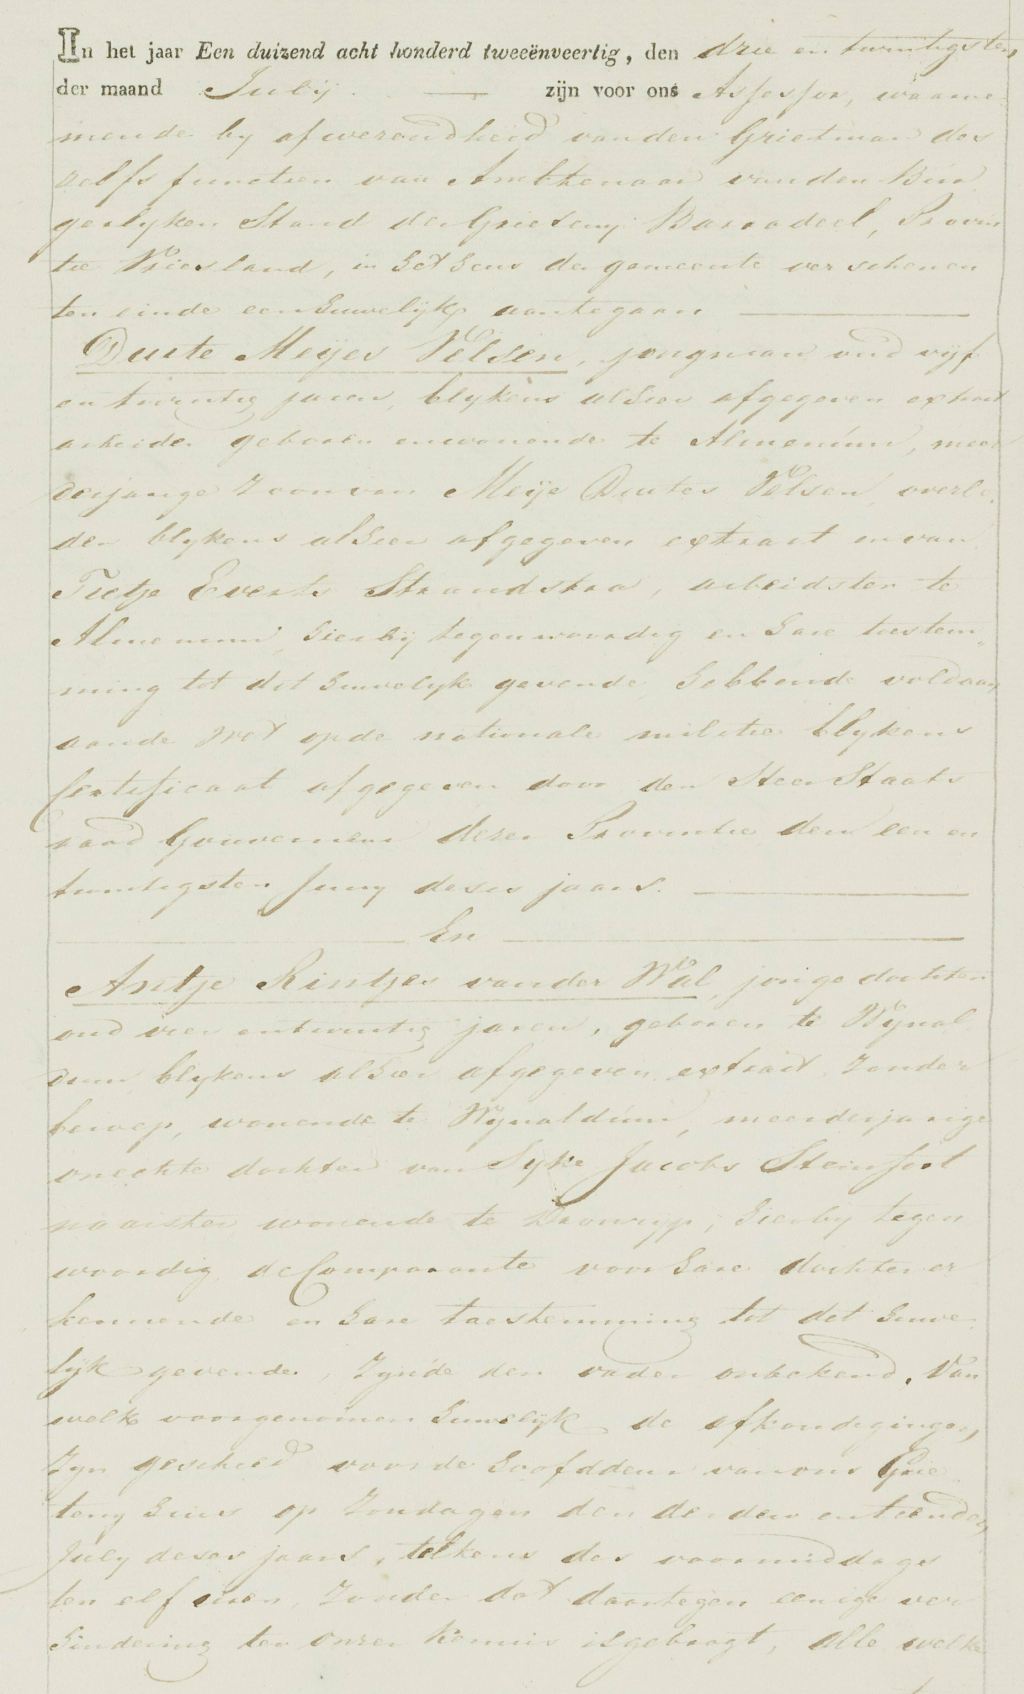 In het jaar Een duizend acht honderd tweeënveertig, den drie en twintigsten
der maand Julij zijn voor ons Assessor, waarne-
mende by afwezendheid van den Grietman des
zelfs functien van Ambtenaar van den Bur
gerlyken Stand der Grieteny Barradeel, Provin
tie Vriesland, in het huis der gemeente verschenen
ten einde een huwelijk aantegaan
Duute Meijes Velsen, jongman oud vijf
en twintig jaren, blykens alhier afgegeven extract
arbeider geboren en wonende te Almenum, meer
derjarige zoon van Meije Duutes Velsen, overle-
den blykens alhier afgegeven extract en van
Tietje Everts Strandstra, arbeidster te
Almenum, hierbij tegenwoordig en hare toestem-
ming tot dit huwelyk gevende, hebbende voldaan
aan de wet op de nationale militie blykens
Certificaat afgegeven door den Heer Staats
raad Gouverneur dezer Provintie den een en
twintigsten Juny dezes jaars.
En
Antje Rintjes van der Wal, jonge dochter
oud vier en twintig jaren, geboren te Wynal
dum blykens alhier afgegeven extract, zonder
beroep, wonende te Wynaldum, meerderjarige
onechte dochter van Syke Jacobs Steinfort
naaister wonende te Dronryp, hierby tegen
woordig, de Comparante voor hare dochter er
kennende en hare toestemming tot dit huwe-
lijk gevende, zynde den vader onbekend. Van
welk voorgenomen huwelijk de afkondigingen,
zyn geschied voor de hoofddeur van ons Grie
teny huis op Zondagen den derden en tienden
July dezes jaars, telkens des voormiddags
ten elf uren, zonder dat daartegen eenige ver
hindering ter onzer kennis is gebragt, alle welke